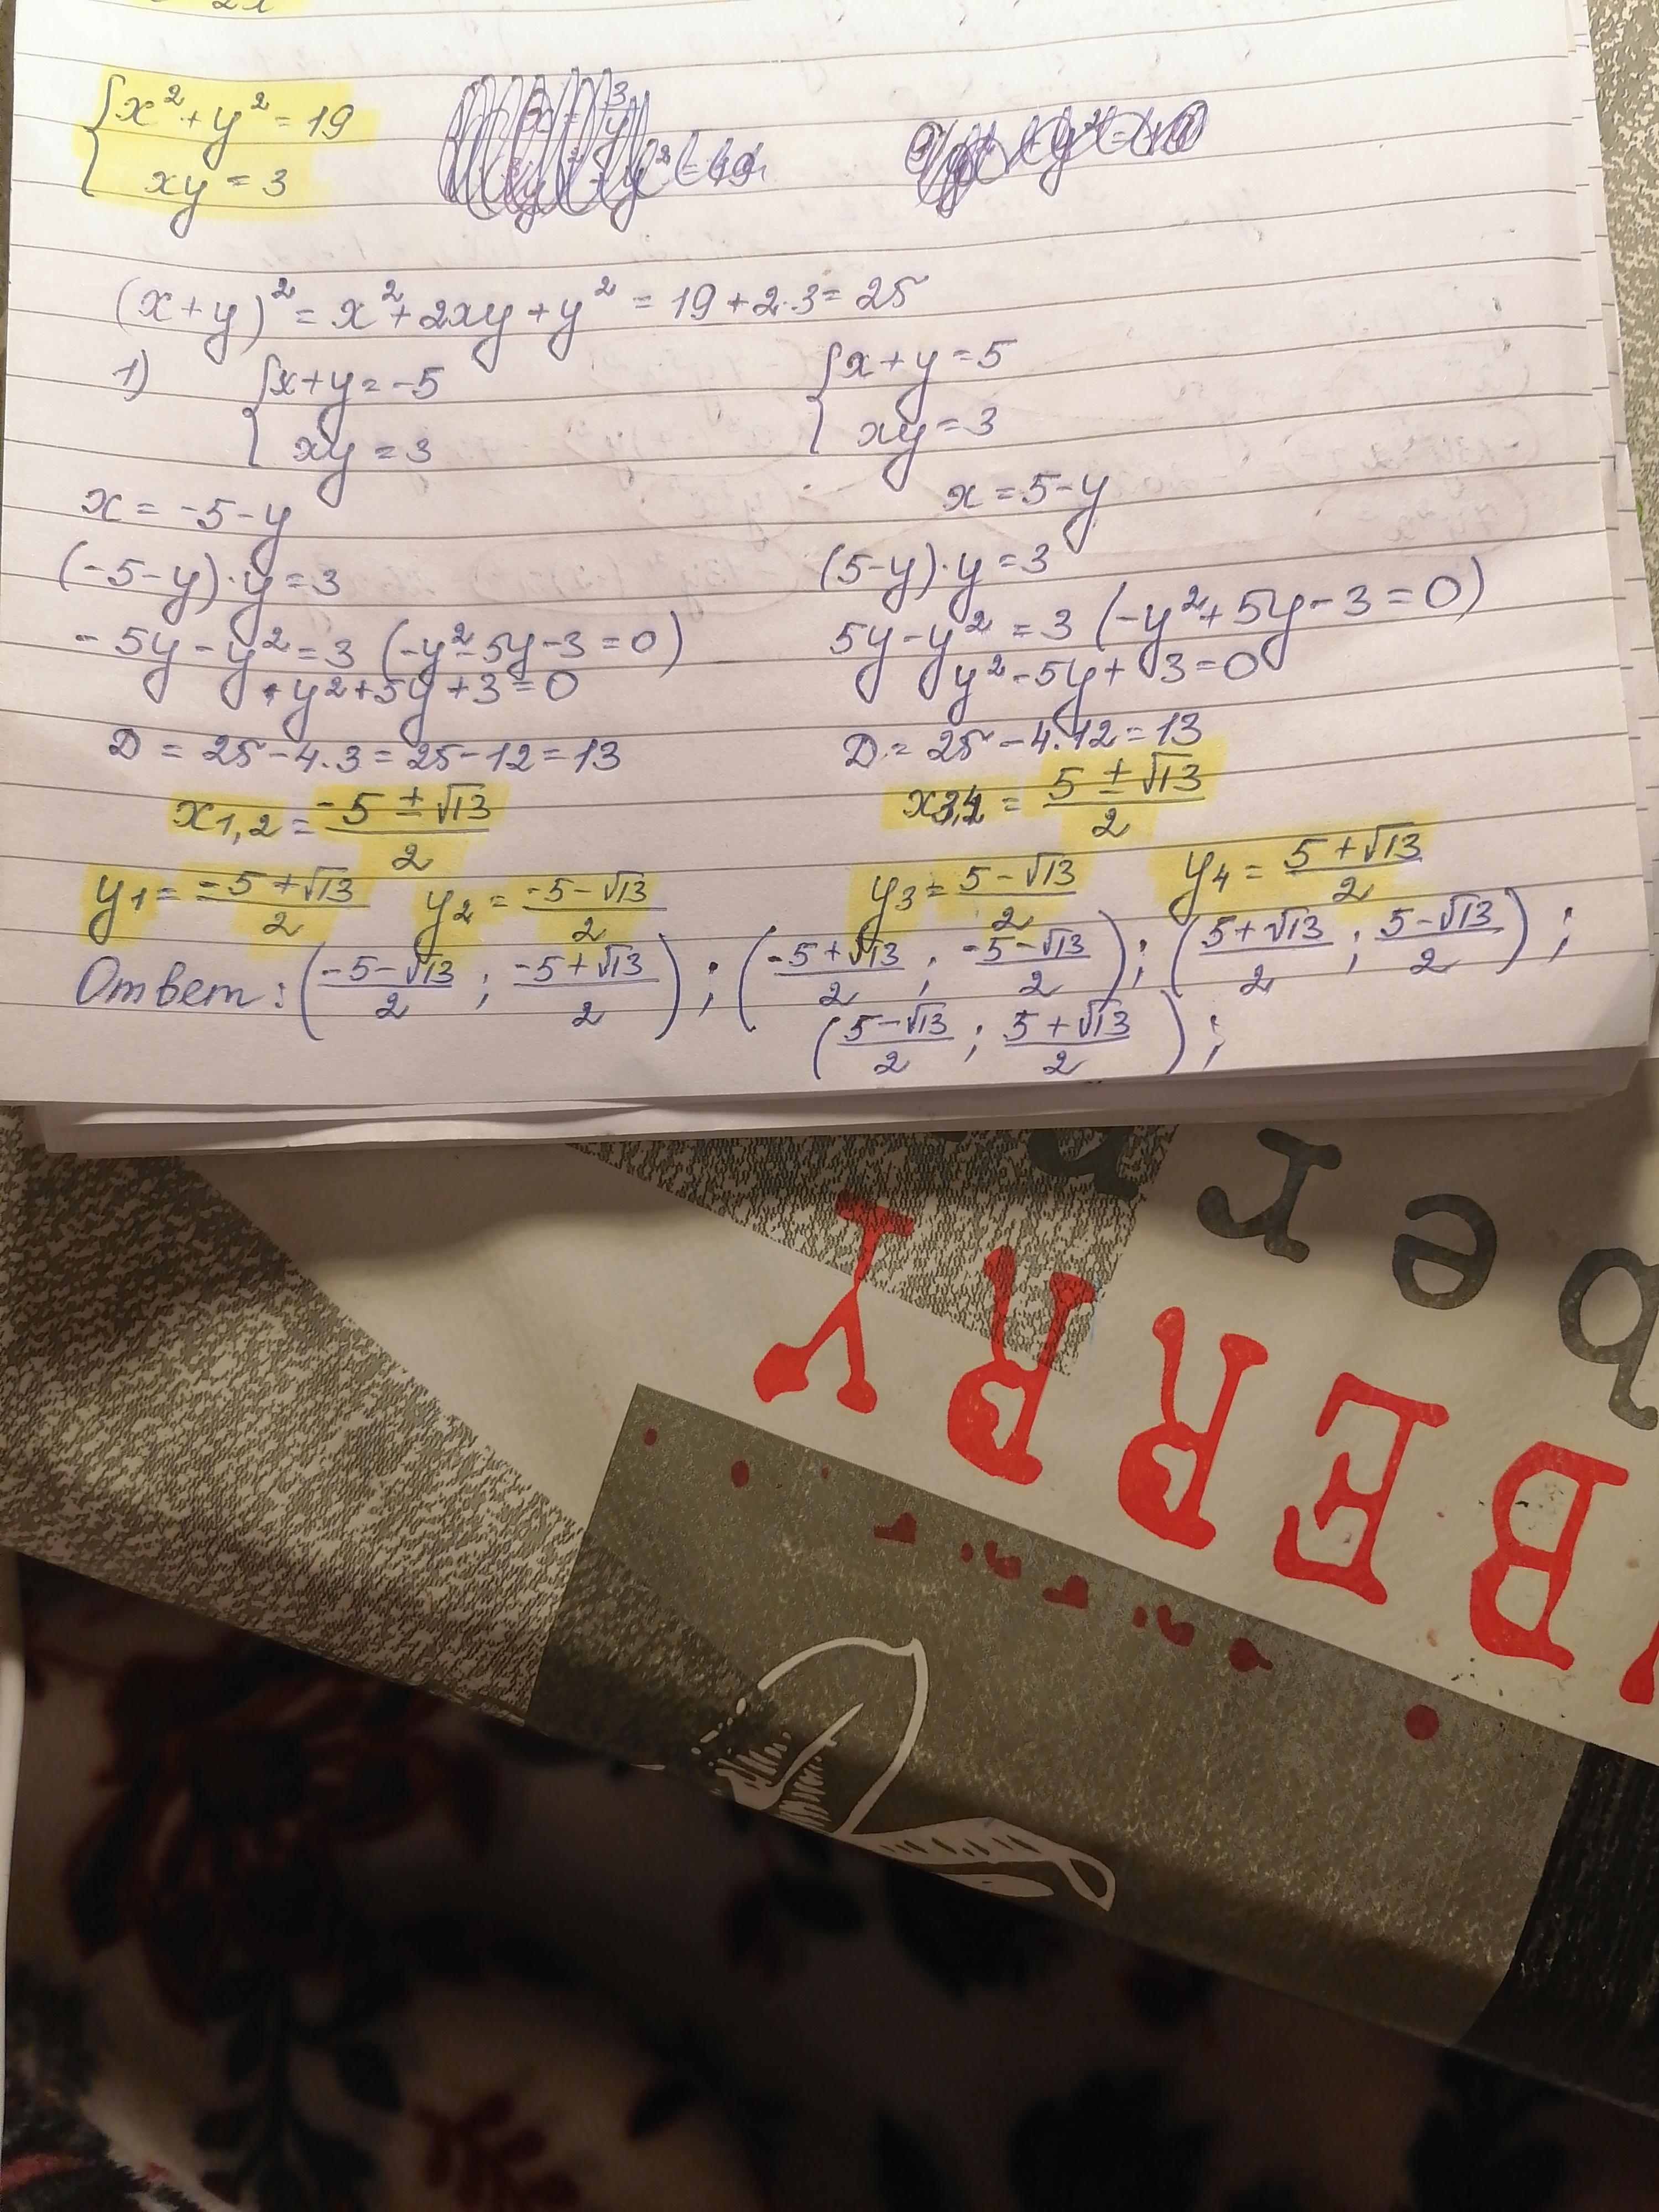 2x
{x² + y² = 19
xy = 3
(x+y)² = x² + 2xy + y² = 19 + 2·3 = 25
1) {x+y = -5
xy = 3
x = -5-y
(-5-y)·y = 3
-5y - y² = 3 (-y² - 5y - 3 = 0)
+y² + 5y + 3 = 0
D = 25 - 4·3 = 25 - 12 = 13
x1,2 = (-5 ± √13)/2
y1 = (-5 + √13)/2 y2 = (-5 - √13)/2
{x + y = 5
xy = 3
x = 5-y
(5-y)·y = 3
5y - y² = 3 (-y² + 5y - 3 = 0)
y² - 5y + 3 = 0
D = 25 - 4·12 = 13
x3,4 = (5 ± √13)/2
y3 = (5 - √13)/2 y4 = (5 + √13)/2
Ответ: ((-5-√13)/2 ; (-5+√13)/2) ; ((-5+√13)/2 ; (-5-√13)/2) ; ((5+√13)/2 ; (5-√13)/2) ;
((5-√13)/2 ; (5+√13)/2) ;
BERRY